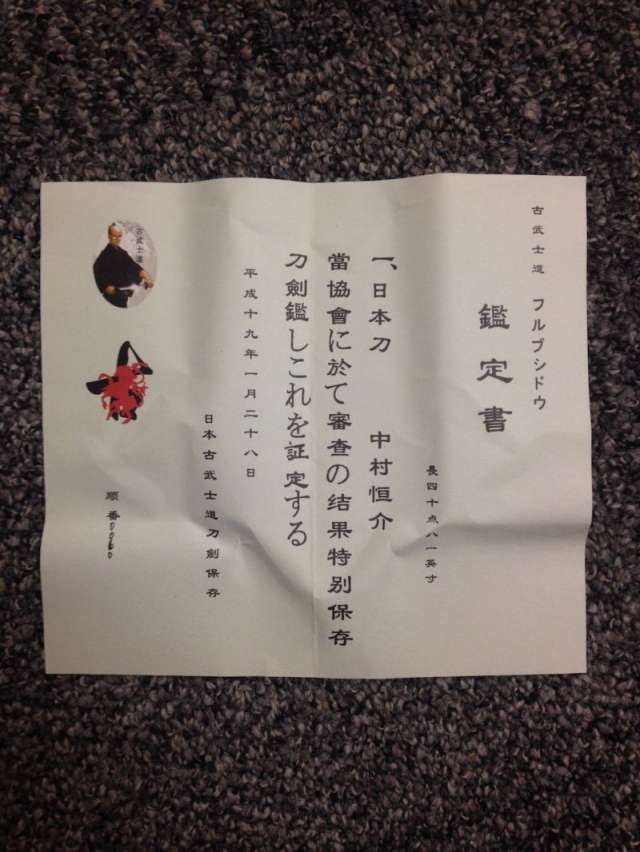 古武士道 フルブシドウ
鑑定書
長四十点八一英寸
一、日本刀 中村恒介
當協會に於て審查の结果特别保存
刀劍鑑しこれを証定する
平成十九年一月二十八日
日本古武士道刀劍保存
古武士道
順番0060